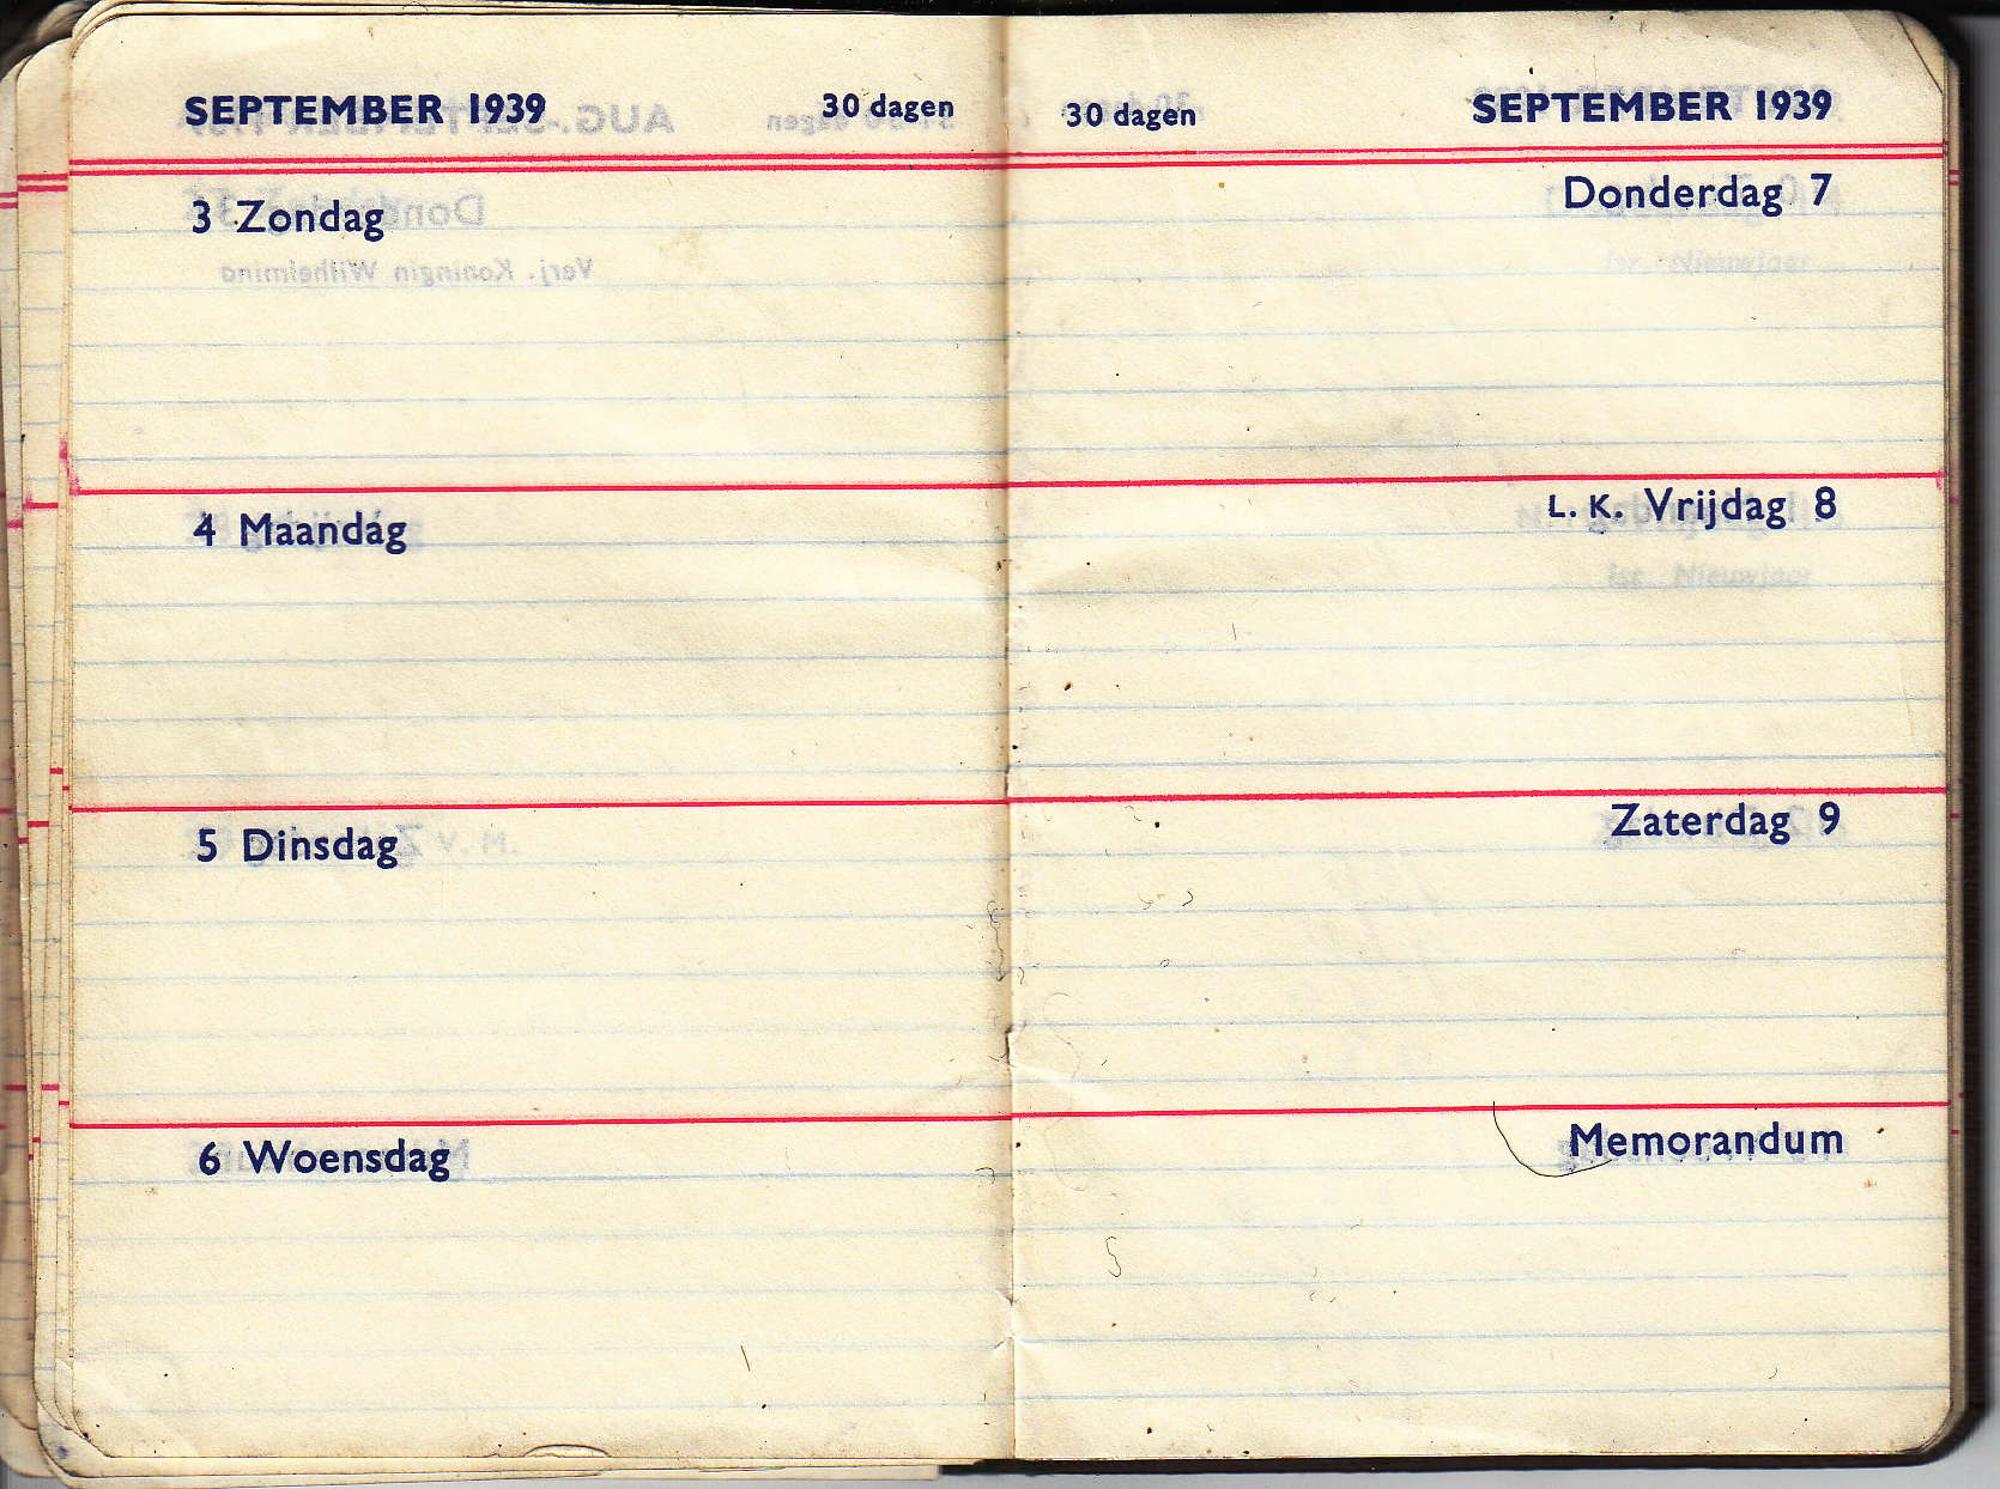 SEPTEMBER 1939 30 dagen
3 Zondag
4 Maandag
5 Dinsdag
6 Woensdag
30 dagen SEPTEMBER 1939
Donderdag 7
L. K. Vrijdag 8
Zaterdag 9
Memorandum